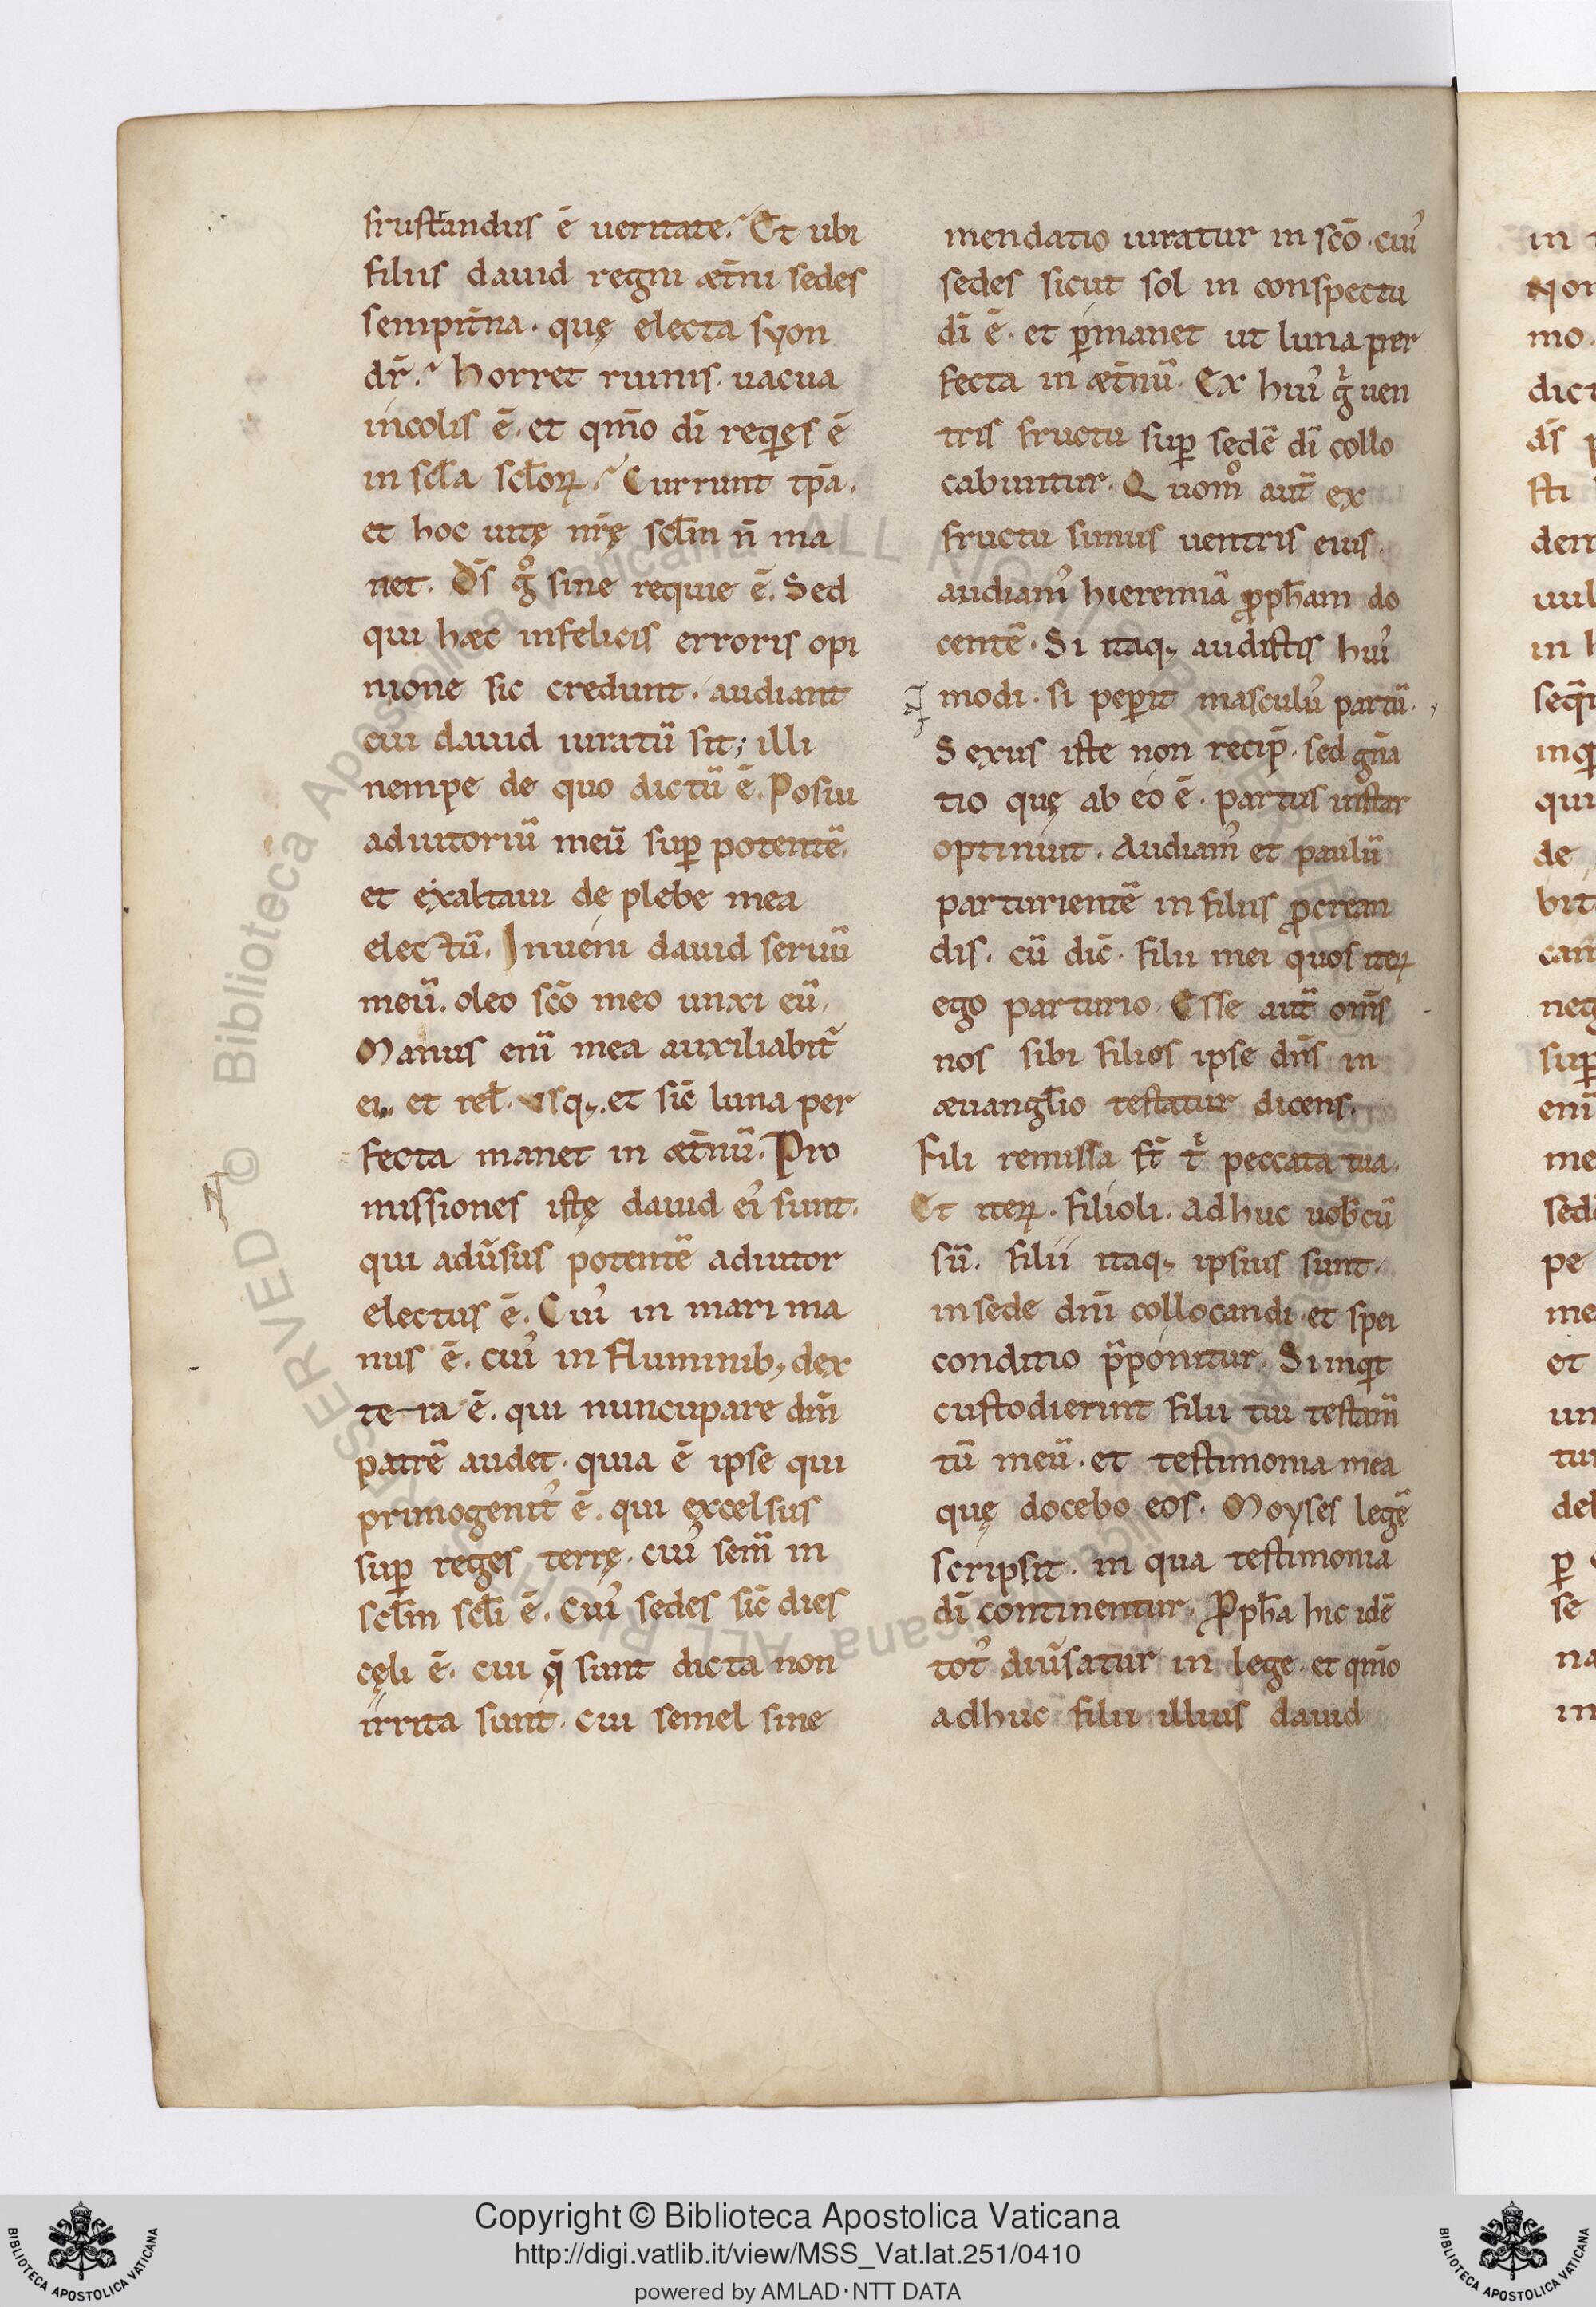 frustandus ē ueritate. Et ubi
filius dauid regni æt̄ni sedes
sempit̄na. quę electa syon
dr̄. horret ruinis. uacua
incolis ē. et qm̄o dī requies ē
in scl̄a scl̄oꝝ. Currunt tp̄a.
et hoc uitę nr̄ę scl̄m n̄ ma
net. Ds̄ gͦ sine requie ē. Sed
qui hæc infelicis erroris opi
nione sic credunt. audiant
cui dauid iuratū sit; illi
nempe de quo dictū ē. Posui
adiutoriū meū suꝑ potentē.
et exaltaui de plebe mea
electū. Inueni dauid seruū
meū. oleo scō meo unxi eū.
Manus enī mea auxiliabit̄
ei. et rel̄. usqꝫ. et sic̄ luna per
fecta manet in æt̄nū. Pro
missiones istę dauid eiꝰ sunt.
qui adūsus potentē adiutor
electus ē. Cuiꝰ in mari ma
nus ē. cuiꝰ in fluminibꝫ dex
tera ē. qui nuncupare dm̄
patrē audet. quia ē ipse qui
primogenitꝰ ē. qui excelsus
suꝑ reges terrę. cuiꝰ sem̄ in
scl̄m scl̄i ē. Cuiꝰ sedes sic̄ dies
cęli ē. cui q̄ sunt dicta non
irrita sunt. cui semel sine
mendatio iuratur in scō. cuiꝰ
sedes sicut sol in conspectu
dī ē. et ꝑmanet ut luna per
fecta in æt̄nū. Ex huiꝰ gͥ uen
tris fructu suꝑ sedē dī collo
cabuntur. Quomͦ aut̄ ex
fructu simus uentris eius.
audiamꝰ hieremiā ꝓph̄am do
centē. Si itaqꝫ audistis huiꝰ
modi. si peꝑit masculuꝰ partū.
Sexus iste non recip̄. sed gn̄a
tio quę ab eo ē. partus instar
optinuit. Audiamꝰ et paulū
parturientē in filiis ꝓcrean
dis. cū dic̄. filii mei quos iteꝝ
ego parturio. Esse aut̄ om̄s
nos sibi filios ipse dn̄s in
æuangl̄io testatur dicens.
Fili remissa st̄ tͥ peccata tua.
Et iteꝝ. filioli. Adhuc uob̄cū
sū. filii itaqꝫ ipsius sunt.
in sede dn̄i collocandi. et spei
conditio p̄ponitur. Si inqͥt
custodierint filii tui testam̄
tū meū. et testimonia mea
quę docebo eos. Moyses legē
scripsit. in qua testimonia
dī continentur. Ꝓph̄a hic idē
totꝰ diūsatur in lege. et qm̄o
adhuc filii illius dauid
Copyright © Biblioteca Apostolica Vaticana
http://digi.vatlib.it/view/MSS_Vat.lat.251/0410
powered by AMLAD·NTT DATA
BIBLIOTECA APOSTOLICA VATICANA
BIBLIOTECA APOSTOLICA VATICANA